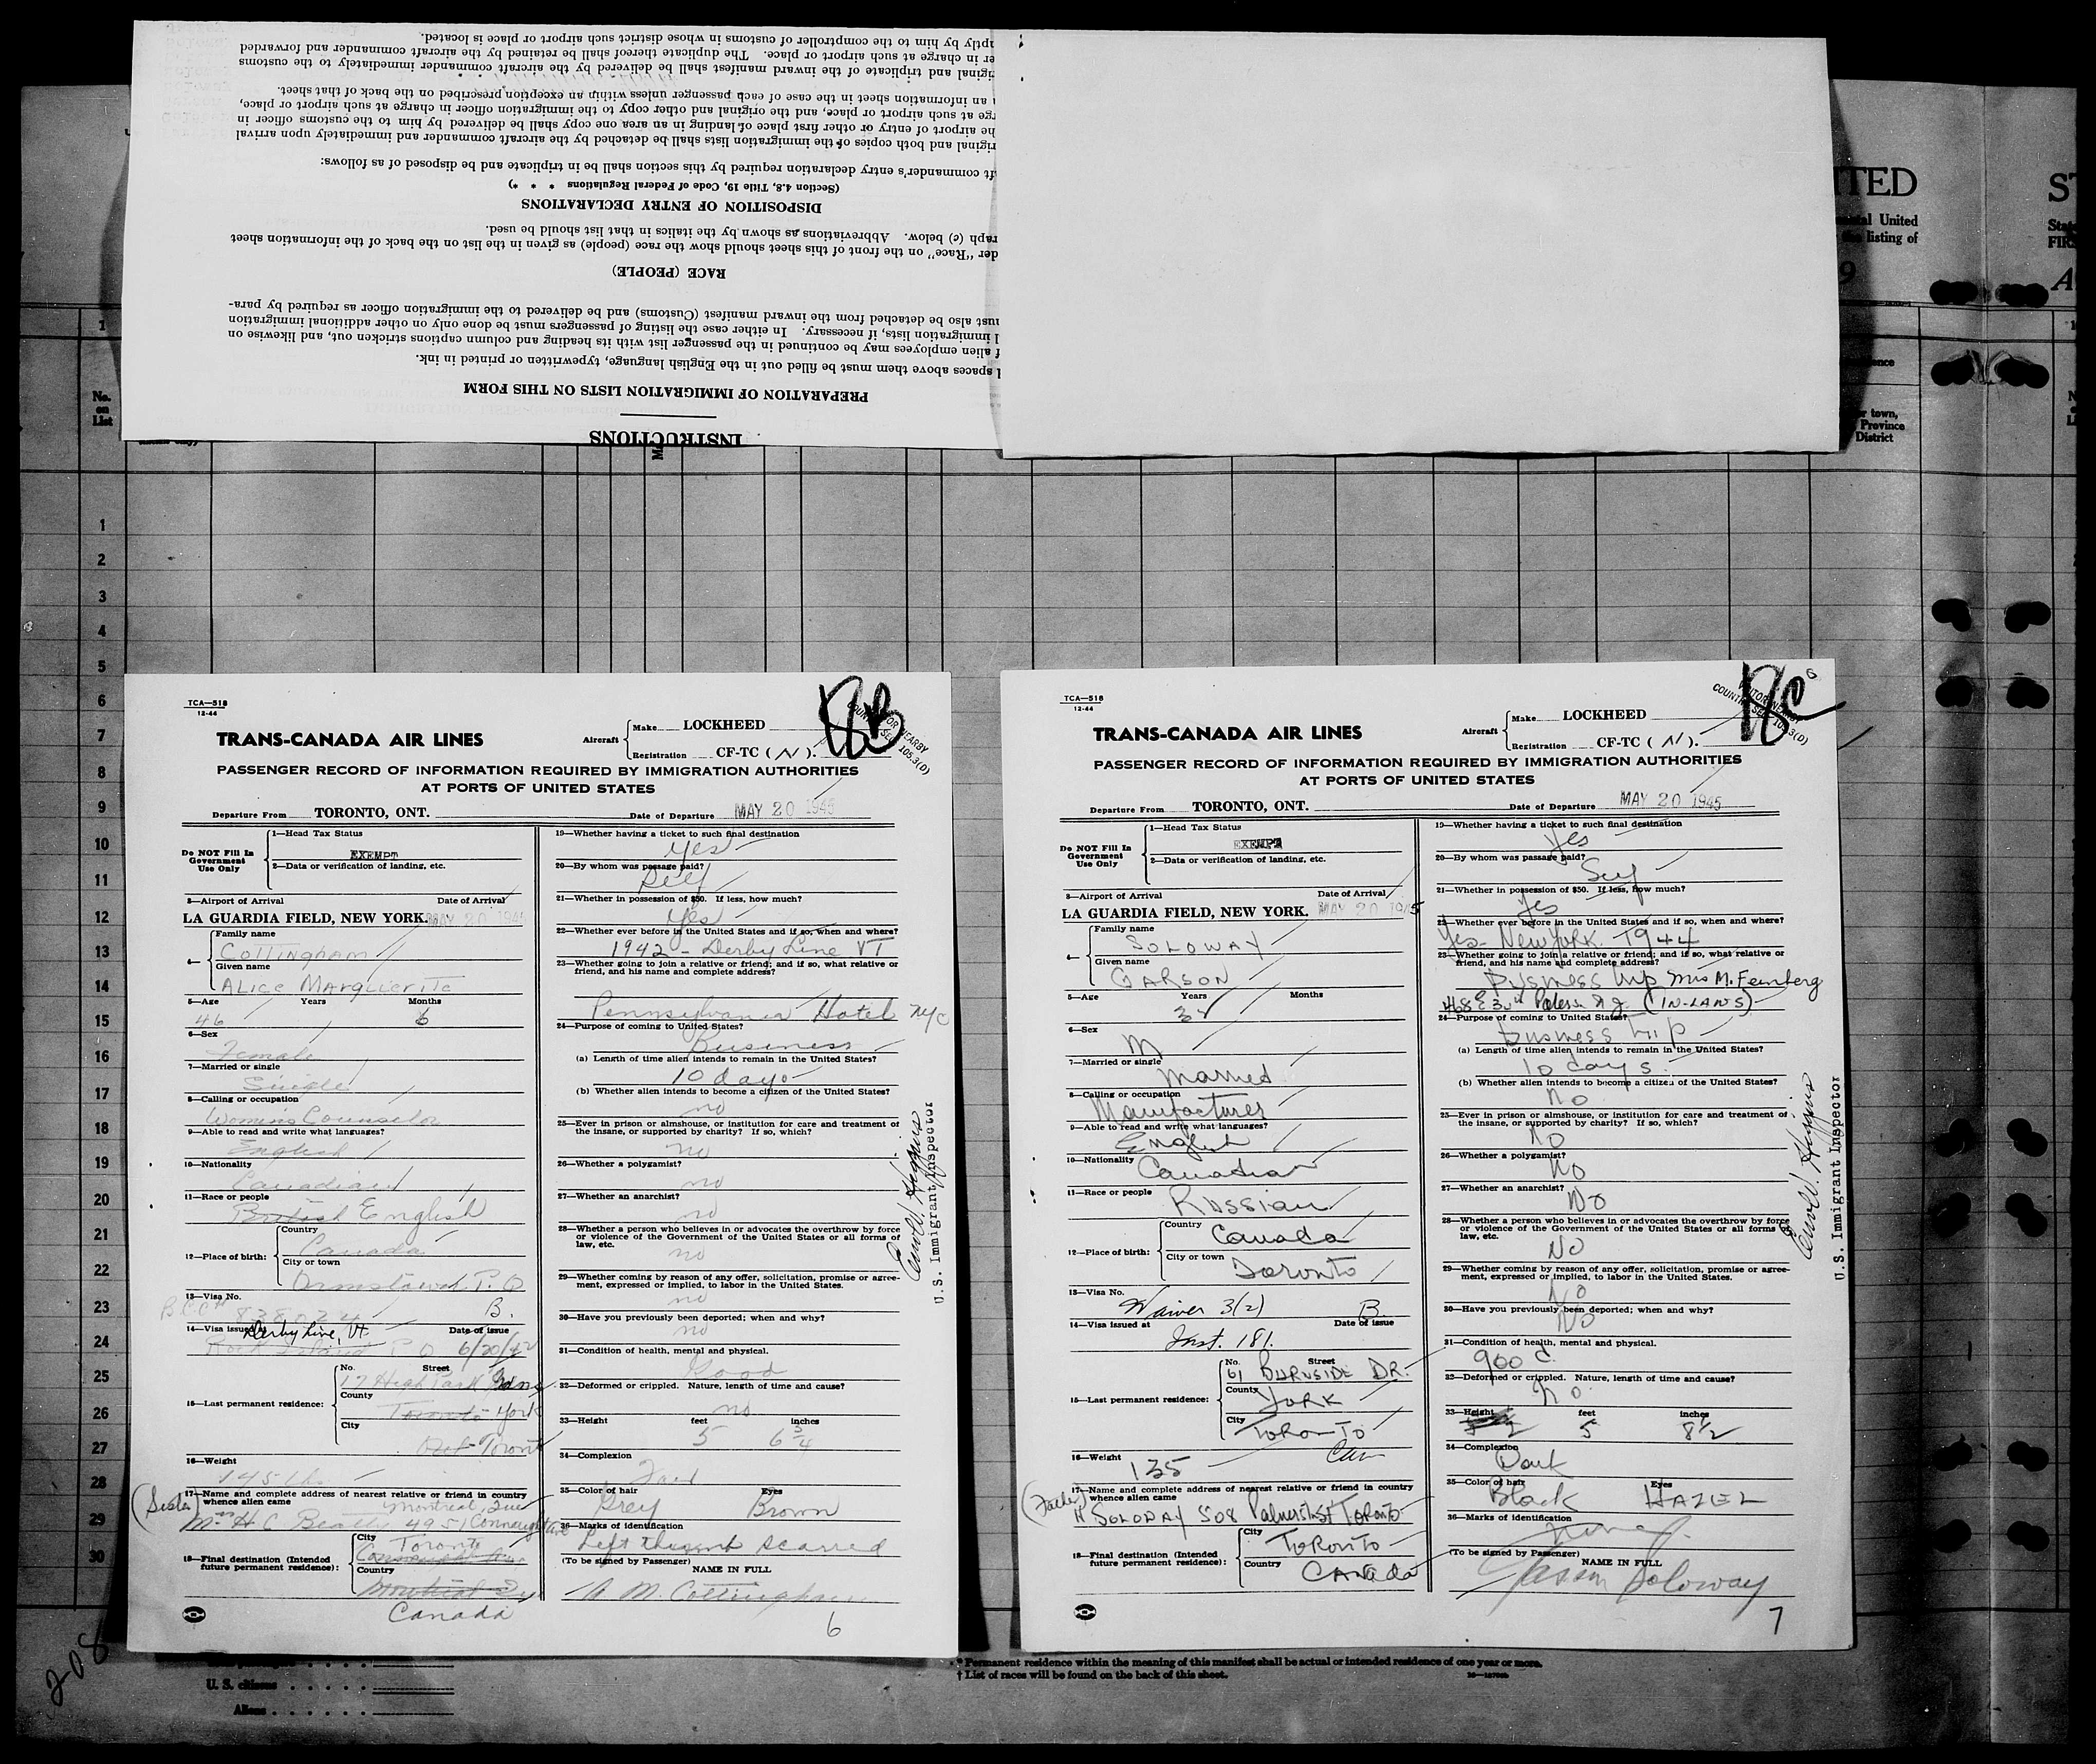 aptly by him to the comptroller of customs in whose district such airport or place is located.
er in charge at such airport or place. The duplicate thereof shall be retained by the aircraft commander and forwarded
iginal and triplicate of the inward manifest shall be delivered by the aircraft commander immediately to the customs
an information sheet in the case of each passenger unless within an exception prescribed on the back of that sheet.
rge at such airport or place, and the original and other copy to the immigration officer in charge at such airport or place,
he airport of entry or other first place of landing in an area one copy shall be delivered by him to the customs officer in
riginal and both copies of the immigration lists shall be detached by the aircraft commander and immediately upon arrival
ft commander's entry declaration required by this section shall be in triplicate and be disposed of as follows:
(Section 4.8, Title 19, Code of Federal Regulations * * *)
DISPOSITION OF ENTRY DECLARATIONS
raph (c) below. Abbreviations as shown by the italics in that list should be used.
der "Race" on the front of this sheet should show the race (people) as given in the list on the back of the information sheet
RACE (PEOPLE)
ust also be detached from the inward manifest (Customs) and be delivered to the immigration officer as required by para-
l immigration lists, if necessary. In either case the listing of passengers must be done only on other additional immigration
f alien employees may be continued in the passenger list with its heading and column captions stricken out, and likewise on
l spaces above them must be filled out in the English language, typewritten or printed in ink.
PREPARATION OF IMMIGRATION LISTS ON THIS FORM
INSTRUCTIONS
ITED
United
listing of
9
town,
Province
District
No.
on
List
1
2
3
4
5
6
7
8
9
10
11
12
13
14
15
16
17
18
19
20
21
22
23
24
25
26
27
28
29
30
TCA—518
12-44
TRANS-CANADA AIR LINES
Aircraft
Make LOCKHEED
Registration CF-TC ( N ).
PASSENGER RECORD OF INFORMATION REQUIRED BY IMMIGRATION AUTHORITIES
AT PORTS OF UNITED STATES
Departure From TORONTO, ONT. Date of Departure MAY 20 1945
Do NOT Fill In Government Use Only
1—Head Tax Status
EXEMPT
2—Data or verification of landing, etc.
3—Airport of Arrival Date of Arrival
LA GUARDIA FIELD, NEW YORK. MAY 20 1945
4—
Family name
Cottingham
Given name
Alice Marguerite
5—Age Years Months
46 6
6—Sex
Female
7—Married or single
Single
8—Calling or occupation
Womens Counselor
9—Able to read and write what languages?
English
10—Nationality
Canadian
11—Race or people
British English
12—Place of birth:
Country
Canada
City or town
Ormstown P.Q
13—Visa No.
B.
14—Visa issued at Date of issue
Derby Line, Vt
Rock Island P Q 6/20/42
15—Last permanent residence:
No. Street
17 High Park Gdns
County
Toronto York
City
Ont Toronto
16—Weight
145 lbs
17—Name and complete address of nearest relative or friend in country
whence alien came
(Sister) Montreal, Que
Mrs H C Beattie 4951 Connaught Ave
18—Final destination (Intended future permanent residence):
City
Toronto
Connaught Ave
Country
Canada
19—Whether having a ticket to such final destination
Yes
20—By whom was passage paid?
Self
21—Whether in possession of $50. If less, how much?
Yes
22—Whether ever before in the United States and if so, when and where?
1942 - Derby Line VT
23—Whether going to join a relative or friend; and if so, what relative or
friend, and his name and complete address?
Pennsylvania Hotel NYC
24—Purpose of coming to United States?
Business
(a) Length of time alien intends to remain in the United States?
10 days
(b) Whether alien intends to become a citizen of the United States?
no
25—Ever in prison or almshouse, or institution for care and treatment of
the insane, or supported by charity? If so, which?
no
26—Whether a polygamist?
no
27—Whether an anarchist?
no
28—Whether a person who believes in or advocates the overthrow by force
or violence of the Government of the United States or all forms of
law, etc.
no
29—Whether coming by reason of any offer, solicitation, promise or agree-
ment, expressed or implied, to labor in the United States.
no
30—Have you previously been deported; when and why?
no
31—Condition of health, mental and physical.
Good
32—Deformed or crippled. Nature, length of time and cause?
no
33—Height feet inches
5 6 3/4
34—Complexion
Fair
35—Color of hair Eyes
Grey Brown
36—Marks of identification
Left scarred
(To be signed by Passenger) NAME IN FULL
A M. Cottingham
6
U.S. Immigrant Inspector
TCA—518
12-44
TRANS-CANADA AIR LINES
Aircraft
Make LOCKHEED
Registration CF-TC ( N ).
PASSENGER RECORD OF INFORMATION REQUIRED BY IMMIGRATION AUTHORITIES
AT PORTS OF UNITED STATES
Departure From TORONTO, ONT. Date of Departure MAY 20 1945
Do NOT Fill In Government Use Only
1—Head Tax Status
EXEMPT
2—Data or verification of landing, etc.
3—Airport of Arrival Date of Arrival
LA GUARDIA FIELD, NEW YORK. MAY 20 1945
4—
Family name
SOLOWAY
Given name
GARSON
5—Age Years Months
6—Sex
M
7—Married or single
Married
8—Calling or occupation
Manufacturer
9—Able to read and write what languages?
English
10—Nationality
Canadian
11—Race or people
Russian
12—Place of birth:
Country
Canada
City or town
Toronto
13—Visa No.
Waiver 3(2) B.
14—Visa issued at Date of issue
Inst. 181.
15—Last permanent residence:
No. Street
61 BURNSIDE DR.
County
York
City
Toronto
Can
16—Weight
135
17—Name and complete address of nearest relative or friend in country
whence alien came
(Father)
H SOLOWAY 508 Palmerston St TORONTO
18—Final destination (Intended future permanent residence):
City
TORONTO
Country
CANADA
19—Whether having a ticket to such final destination
Yes
20—By whom was passage paid?
Self
21—Whether in possession of $50. If less, how much?
Yes
22—Whether ever before in the United States and if so, when and where?
Yes - New York 1944
23—Whether going to join a relative or friend; and if so, what relative or
friend, and his name and complete address?
Business trip Mrs M. Feinberg
468 E 30th N J. (IN-LAWS)
24—Purpose of coming to United States?
Business trip
(a) Length of time alien intends to remain in the United States?
10 days
(b) Whether alien intends to become a citizen of the United States?
No
25—Ever in prison or almshouse, or institution for care and treatment of
the insane, or supported by charity? If so, which?
No
26—Whether a polygamist?
No
27—Whether an anarchist?
No
28—Whether a person who believes in or advocates the overthrow by force
or violence of the Government of the United States or all forms of
law, etc.
No
29—Whether coming by reason of any offer, solicitation, promise or agree-
ment, expressed or implied, to labor in the United States.
No
30—Have you previously been deported; when and why?
No
31—Condition of health, mental and physical.
good
32—Deformed or crippled. Nature, length of time and cause?
No
33—Height feet inches
5 8 1/2
34—Complexion
Dark
35—Color of hair Eyes
Black HAZEL
36—Marks of identification
None
(To be signed by Passenger) NAME IN FULL
Garson Soloway
7
U.S. Immigrant Inspector
208
U. S. citizens
Aliens
* Permanent residence within the meaning of this manifest shall be actual or intended residence of one year or more.
† List of races will be found on the back of this sheet.